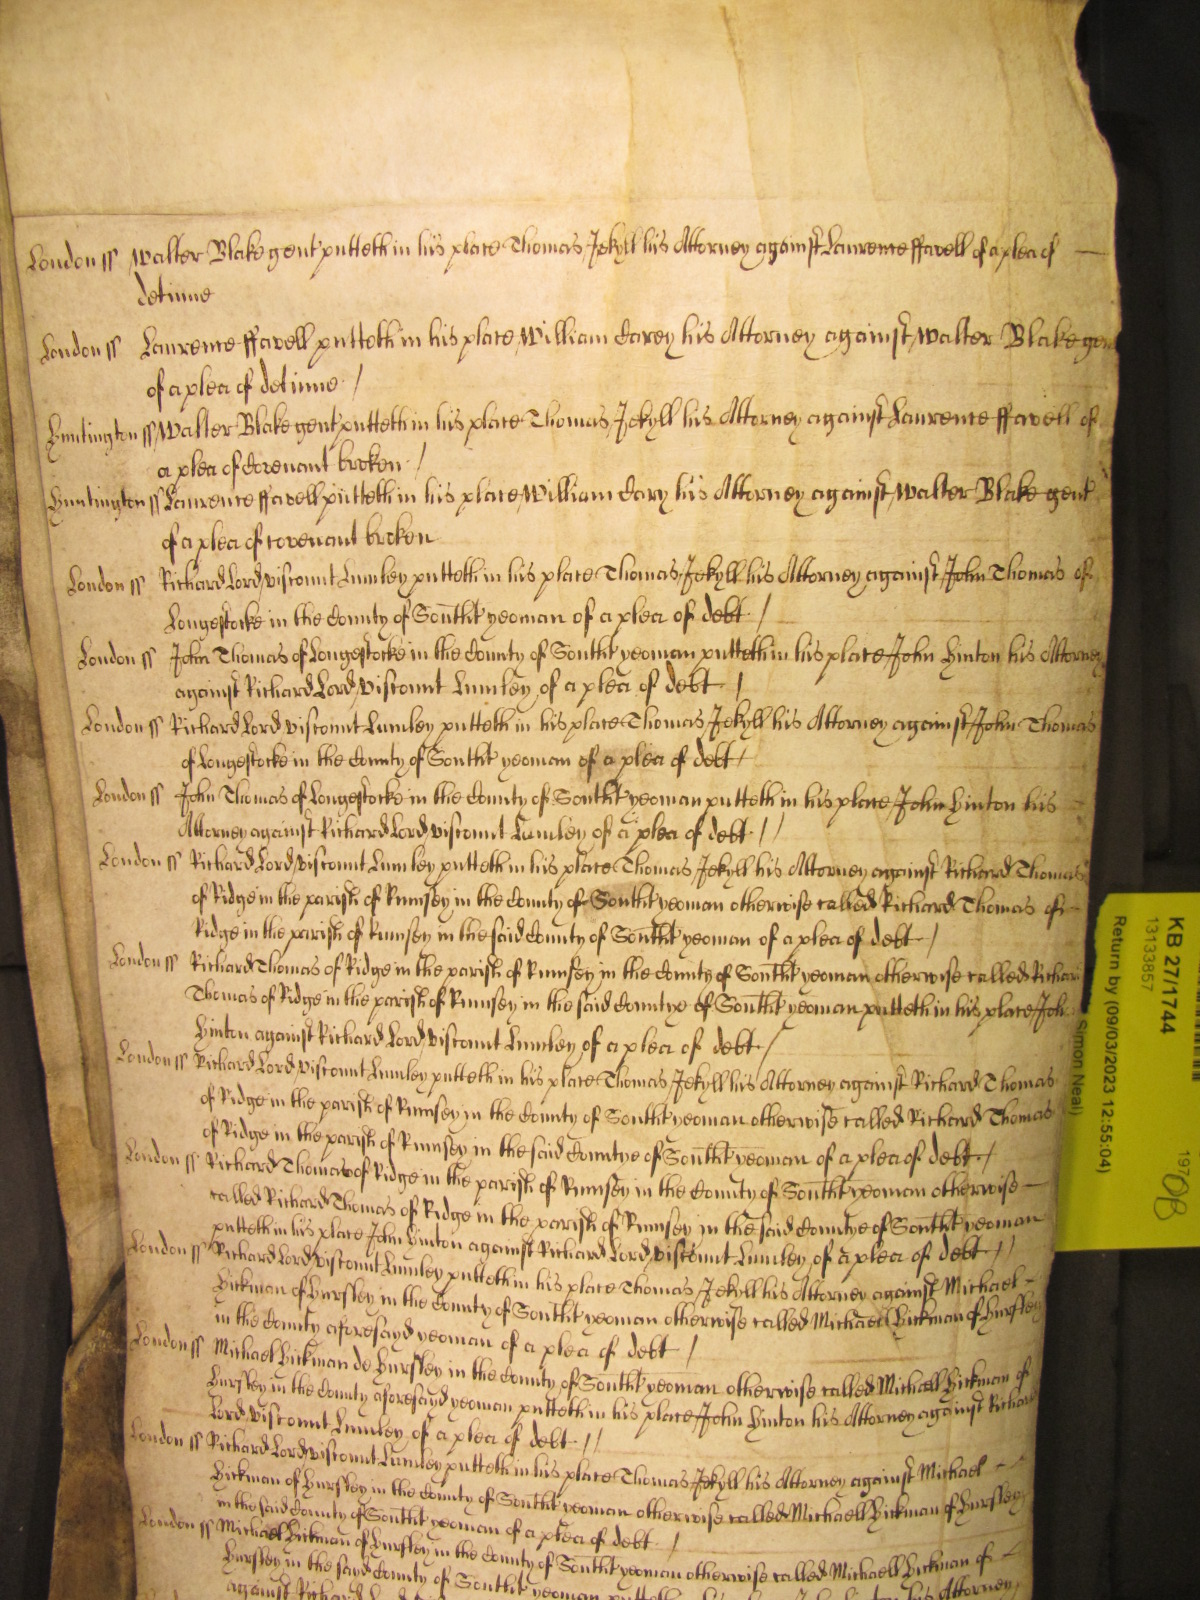 London ss Walter Blake gent putteth in his place Thomas Jekyll his Attorney against Laurence ffavell of a plea of —
detinue
London ss Laurence ffavell putteth in his place William Carey his Attorney against Walter Blake gen
of a plea of detinue /
Huntington ss Walter Blake gent putteth in his place Thomas Jekyll his Attorney against Laurence ffavell of
a plea of Covenant broken /
Huntington ss Laurence ffavell putteth in his place William Cary his Attorney against Walter Blake gent
of a plea of covenant broken
London ss Richard Lord Viscount Lumley putteth in his place Thomas Jekyll his Attorney against John Thomas of
Longestocke in the County of Southt yeoman of a plea of debt /
London ss John Thomas of Longestocke in the County of Southt yeoman putteth in his place John Hinton his Attorney
against Richard Lord Viscount Lumley of a plea of debt /
London ss Richard Lord Viscount Lumley putteth in his place Thomas Jekyll his Attorney against John Thomas
of Longestocke in the County of Southt yeoman of a plea of debt /
London ss John Thomas of Longestocke in the County of Southt yeoman putteth in his place John Hinton his —
Attorney against Richard Lord Viscount Lumley of a plea of debt //
London ss Richard Lord Viscount Lumley putteth in his place Thomas Jekyll his Attorney against Richard Thomas
of Ridge in the parish of Rumsey in the County of Southt yeoman otherwise called Richard Thomas of —
Ridge in the parish of Rumsey in the said County of Southt yeoman of a plea of debt /
London ss Richard Thomas of Ridge in the parish of Rumsey in the County of Southt yeoman otherwise called Richar
Thomas of Ridge in the parish of Rumsey in the said Countye of Southt yeoman putteth in his place Joh
Hinton against Richard Lord Viscount Lumley of a plea of debt /
London ss Richard Lord Viscount Lumley putteth in his place Thomas Jekyll his Attorney against Richard Thomas
of Ridge in the parish of Rumsey in the County of Southt yeoman otherwise called Richard Thomas
of Ridge in the parish of Rumsey in the said Countye of Southt yeoman of a plea of debt /
London ss Richard Thomas of Ridge in the parish of Rumsey in the County of Southt yeoman otherwise —
called Richard Thomas of Ridge in the parish of Rumsey in the said Countye of Southt yeoman
putteth in his place John Hinton against Richard Lord Viscount Lumley of a plea of debt //
London ss Richard Lord Viscount Lumley putteth in his place Thomas Jekyll his Attorney against Michael —
Hickman of Hursley in the County of Southt yeoman otherwise called Michaell Hickman of Hursley
in the County aforesayd yeoman of a plea of debt /
London ss Michael Hickman de Hursley in the County of Southt yeoman otherwise called Michaell Hickman of
Hursley in the County aforesayd yeoman putteth in his place John Hinton his Attorney against Richard
Lord Viscount Lumley of a plea of debt //
London ss Richard Lord Viscount Lumley putteth in his place Thomas Jekyll his Attorney against Michael —
Hickman of Hursley in the County of Southt yeoman otherwise called Michaell Hickman of Hursley
in the said County of Southt yeoman of a plea of debt /
London ss Michael Hickman of Hursley in the County of Southt yeoman otherwise called Michaell Hickman of —
Hursley in the sayd County of Southt yeoman putteth
against Richard his Attorney
KB 27/1744
13133857
Return by (09/03/2023 12:55:04)
Simon Neal)